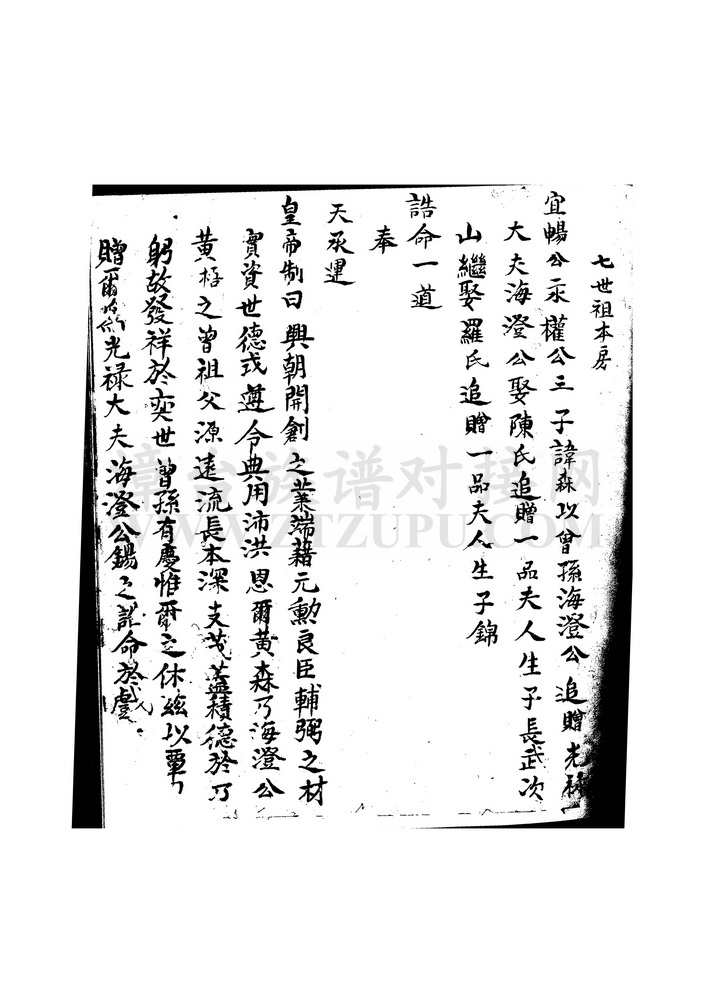 七世祖本房
宜暢公汞權公三子諱森以曾孫海澄公追贈光祿
大夫海澄公娶陳氏追贈一品夫人生子長武次
山繼娶羅氏追贈一品夫人生子錦
誥命一道
奉
天承運
皇帝制曰興朝開創之業端藉元勳良臣輔弼之材
實資世德式遵令典用沛洪恩爾黄森乃海澄公
黄梧之曾祖父源遠流長本深支茂蓋積德於乃
躬故發祥於奕世曾孫有慶惟爾之休兹以覃
贈爾為光禄大夫海澄公錫之誥命於戲
漳台族谱对接网
WWW.ZTZUPU.COM